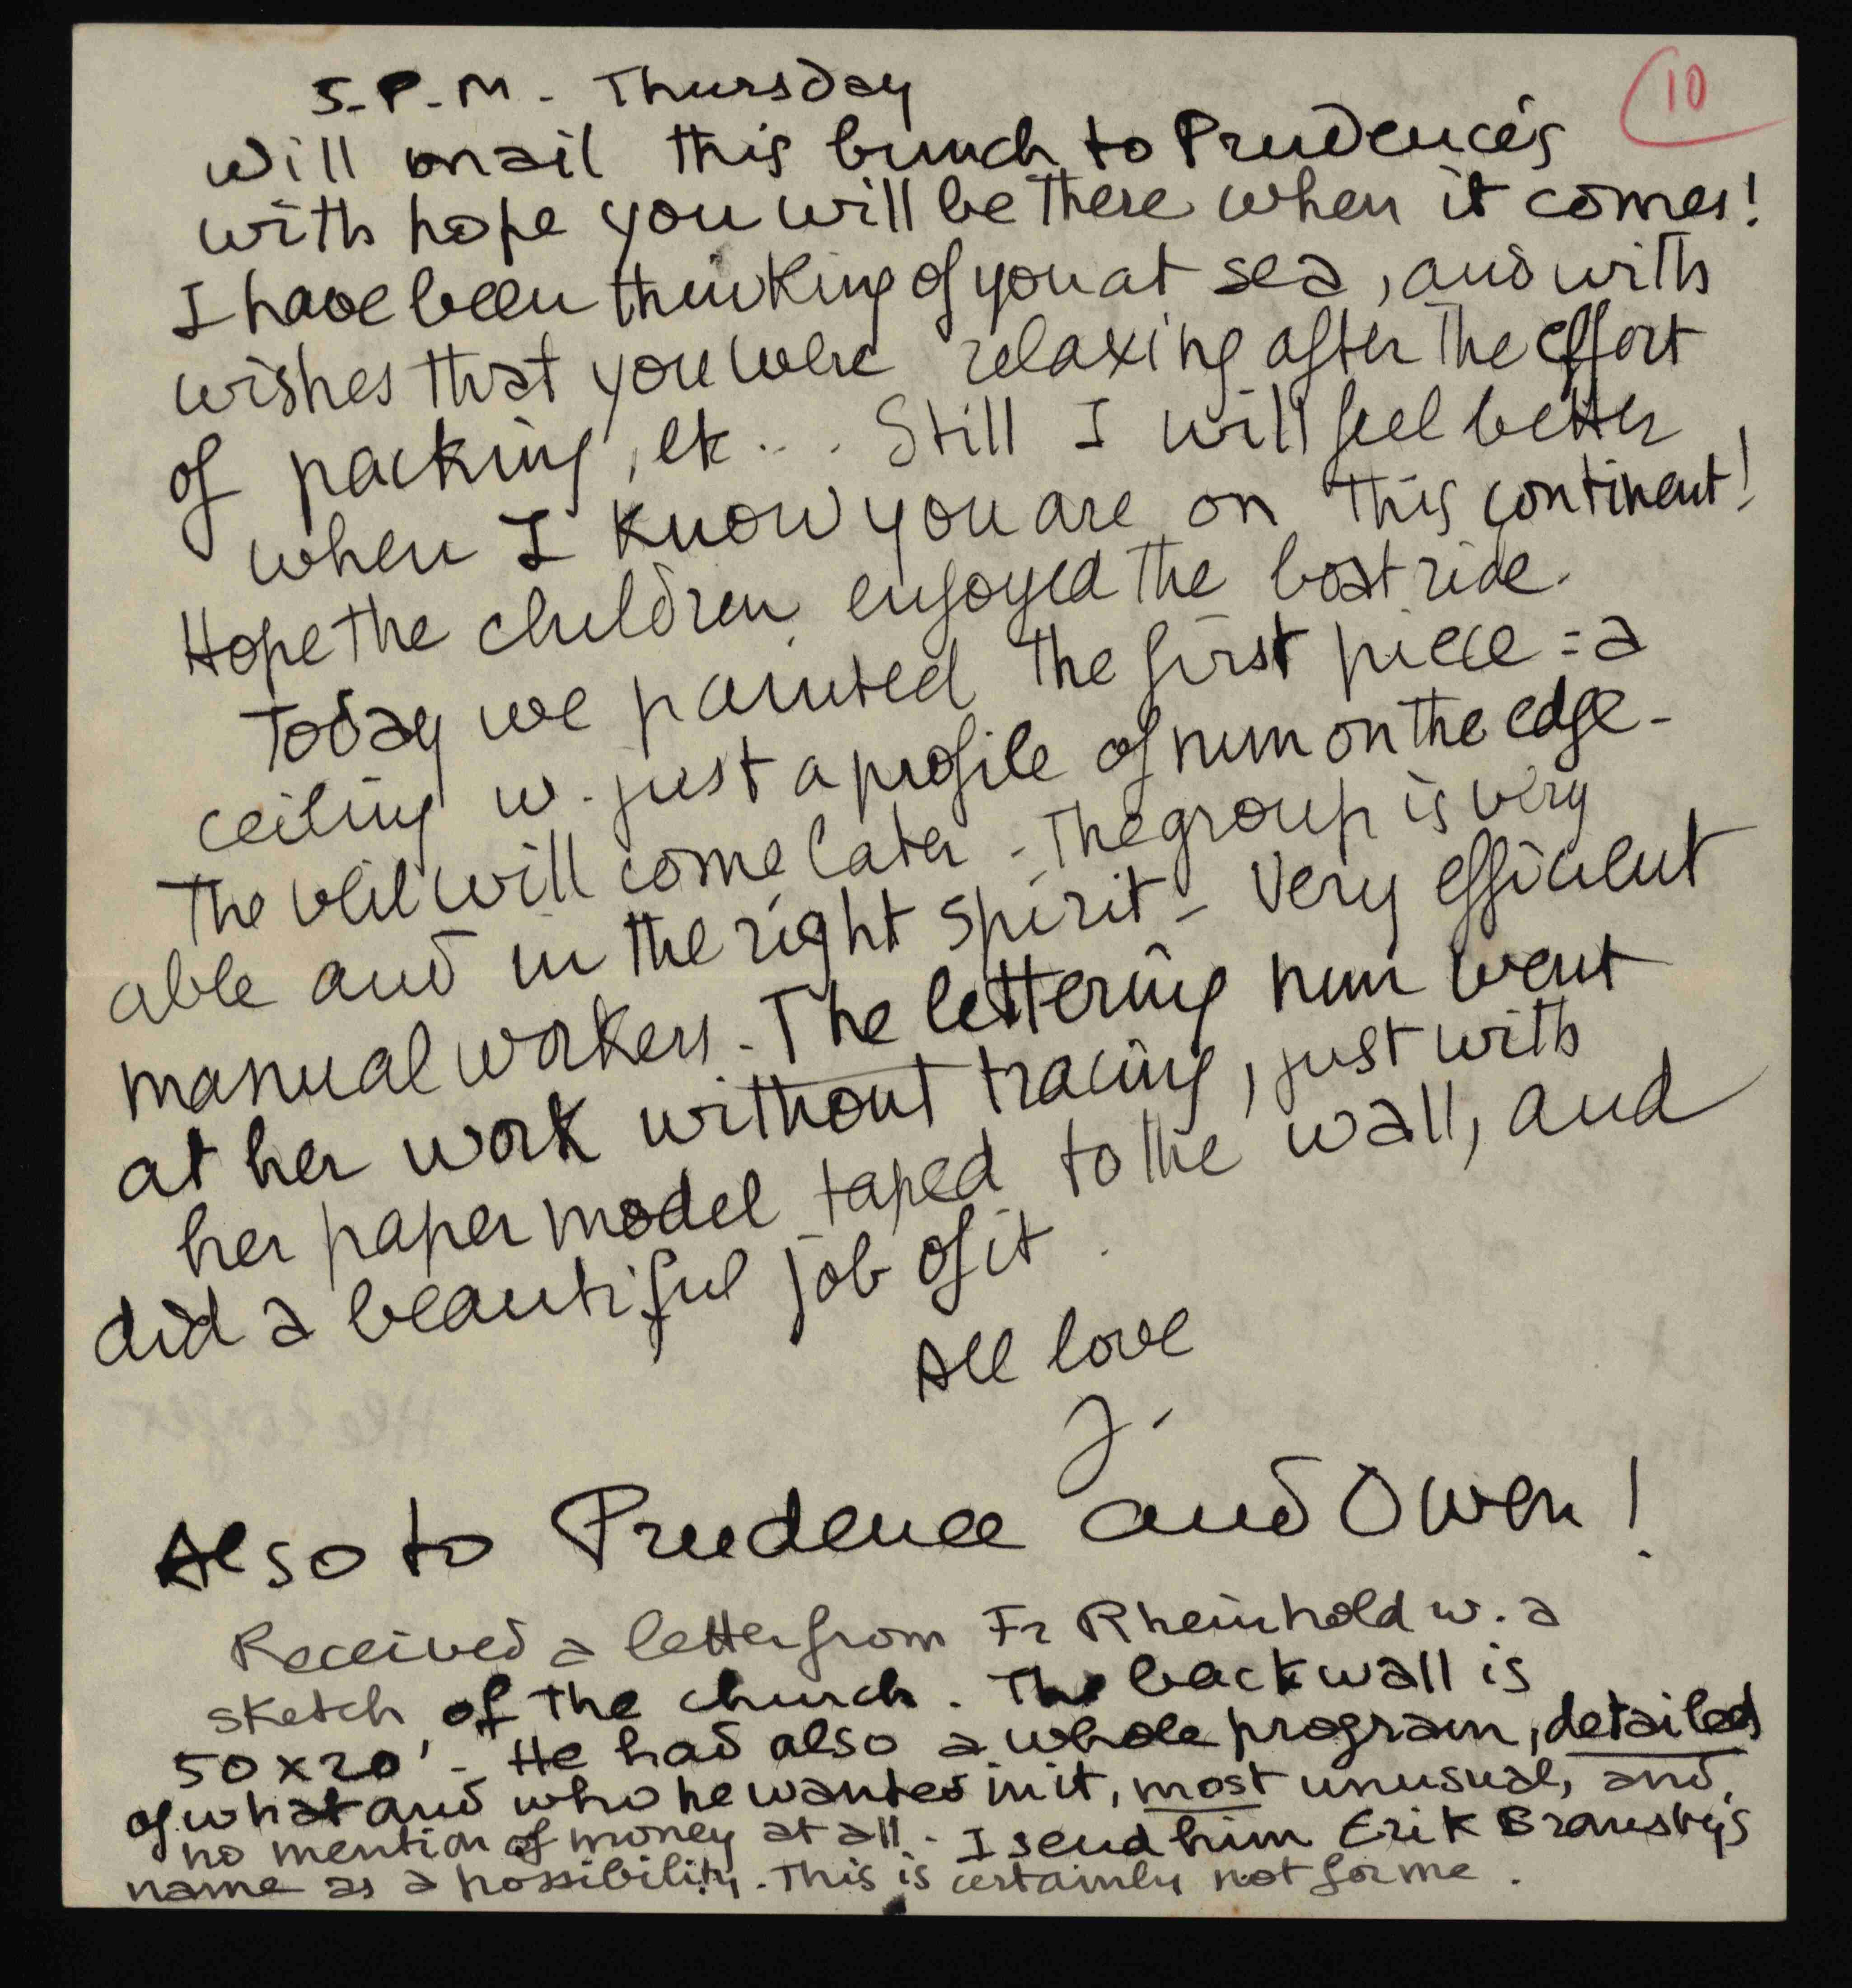 5-P.M. Thursday
10
Will mail this bunch to Prudence's
with hope you will be there when it comes!
I have been thinking of you at sea, and with
wishes that you were relaxing after the effort
of packing, etc... Still I will feel better
when I know you are on this continent!
Hope the children enjoyed the boat ride.
Today we painted the first piece = a
ceiling w. just a profile of nun on the edge -
The veil will come later - The group is very
able and in the right spirit - Very efficient
manual workers. The lettering nun went
at her work without tracing, just with
her paper model taped to the wall, and
did a beautiful job of it.
All love
J-
Also to Prudence and Owen!
Received a letter from Fr Rheinhold w. a
sketch of the church. The back wall is
50x20' - He had also a whole program, detailed
of what and who he wanted in it, most unusual, and
no mention of money at all - I send him Erik Bransby's
name as a possibility. This is certainly not for me.